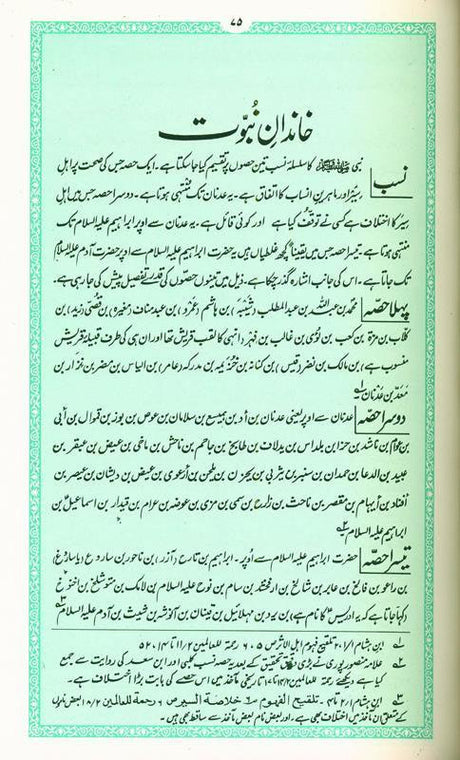 ۷۵
خاندانِ نبوّت
نسب نبی ﷺ کا سلسلہ نسب تین حصوں پر تقسیم کیا جاسکتا ہے۔ ایک حصہ جس کی صحت پر اہلِ
سِیَر اور ماہرینِ انساب کا اتفاق ہے۔ یہ عدنان تک منتہی ہوتا ہے۔ دوسرا حصہ جس میں اہلِ
سِیَر کا اختلاف ہے کسی نے توقف کیا ہے اور کوئی قائل ہے۔ یہ عدنان سے اوپر ابراہیم علیہ السلام تک
منتہی ہوتا ہے۔ تیسرا حصہ جس میں یقیناً کچھ غلطیاں ہیں یہ حضرت ابراہیم علیہ السلام سے اوپر حضرت آدم علیہ السلام
تک جاتا ہے۔ اس کی جانب اشارہ گذر چکا ہے۔ ذیل میں تینوں حصوں کی قدرے تفصیل پیش کی جارہی ہے۔
پہلا حصّہ محمد بن عبداللہ بن عبدالمطلب (شَیْبَہ) بن ہاشم (عَمْرو) بن عبدمناف (مغیرہ) بن قُصَیّ (زید) بن
کلاب بن مرّہ بن کعب بن لُوَیّ بن غالب بن فہر (انہی کا لقب قریش تھا اور ان ہی کی طرف قبیلۂ قریش
منسوب ہے) بن مالک بن نضر (قیس) بن کنانہ بن خُزَیمہ بن مدرکہ (عامر) بن الیاس بن مضر بن نزار بن
مَعَدّ بن عدنان ۱؎
دوسرا حصّہ عدنان سے اوپر یعنی عدنان بن أد بن ہمیسع بن سلامان بن عوص بن یوز بن قموال بن أبی
بن عوام بن ناشد بن حزا بن بلداس بن یدلاف بن طابخ بن جاحم بن ناحش بن ماخی بن عیض بن عبقر بن
عبید بن الدعا بن حمدان بن سنبر بن یثربی بن یحزن بن یلحن بن أرعوی بن عیض بن دیشان بن عیصر بن
أفناد بن أیہام بن مقصر بن ناحث بن زارح بن سمی بن مزی بن عوضہ بن عرام بن قیدار بن اسماعیل بن
ابراہیم علیہ السلام ۲؎
تیسرا حصّہ حضرت ابراہیم علیہ السلام سے اُوپر۔ ابراہیم بن تارح (آزر) بن ناحور بن ساروع (یا ساروغ)
بن راعو بن فالخ بن عابر بن شالخ بن ارفخشد بن سام بن نوح علیہ السلام بن لامک بن متوشلخ بن اخنوخ
(کہا جاتا ہے کہ یہ ادریس کا نام ہے) بن یرد بن مہلائیل بن قینان بن آنوشہ بن شیث بن آدم علیہ السلام ۳؎
۱؎ ابن ہشام ۱/۱، ۲ تلقیح فہوم اہل الاثر ص ۵، ۶ رحمۃ للعالمین ۲/ ۱۱ تا ۱۴، ۵۲
۲؎ علامہ منصورپوری نے بڑی دقیق تحقیق کے بعد یہ حصہ نسب کلبی اور ابن سعد کی روایت سے جمع
کیا ہے دیکھئے رحمۃ للعالمین ۲/ ۱۴ تا ۱۷ تاریخی مآخذ میں اس حصے کی بابت بڑا اختلاف ہے۔
۳؎ ابن ہشام ۱/ ۲ تا ۴، تلقیح الفہوم ص ۶ خلاصۃ السیر ص ۶ رحمۃ للعالمین ۲/ ۱۸ بعض ناموں
کے متعلق ان مآخذ میں اختلاف بھی ہے۔ اور بعض نام بعض مآخذ سے ساقط بھی ہیں۔